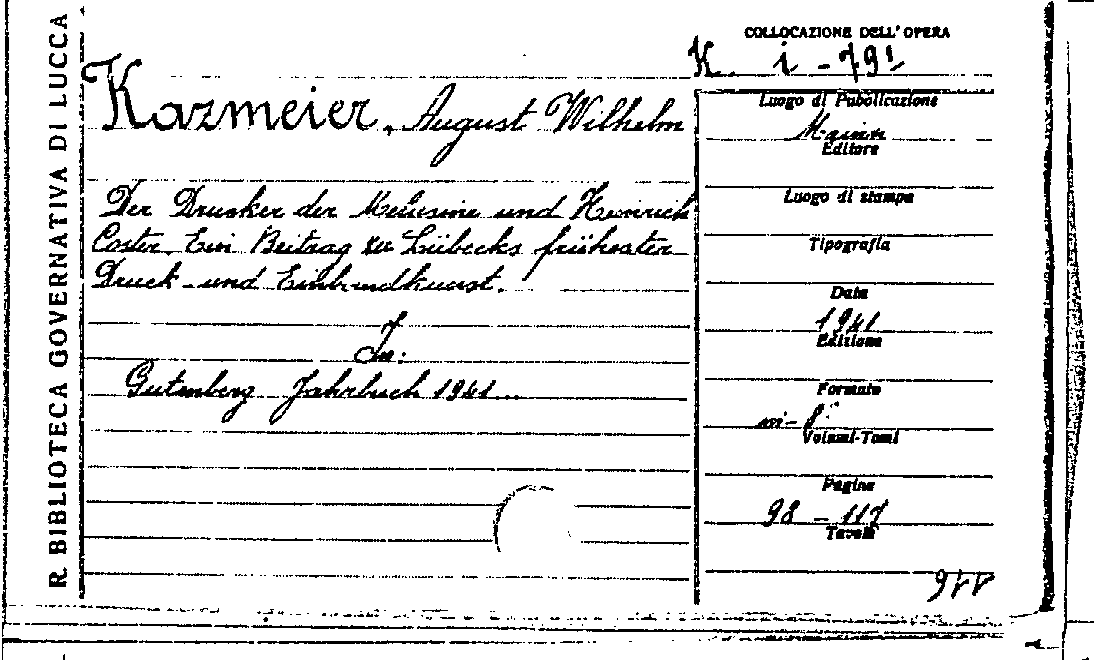 R. BIBLIOTECA GOVERNATIVA DI LUCCA
COLLOCAZIONE DELL'OPERA
K. i - 791
Kazmeier, August Wilhelm
Der Drucker der Melusine und Heinrich
Coster. Ein Beitrag zu Lübecks frühester
Druck- und Einbandkunst.
In:
Gutenberg Jahrbuch 1941
Luogo di Pubblicazione
Mainz
Editore
Luogo di stampa
Tipografia
Data
1941
Edizione
Formato
in-8°
Volumi-Tomi
Pagine
98 - 117
Tavole